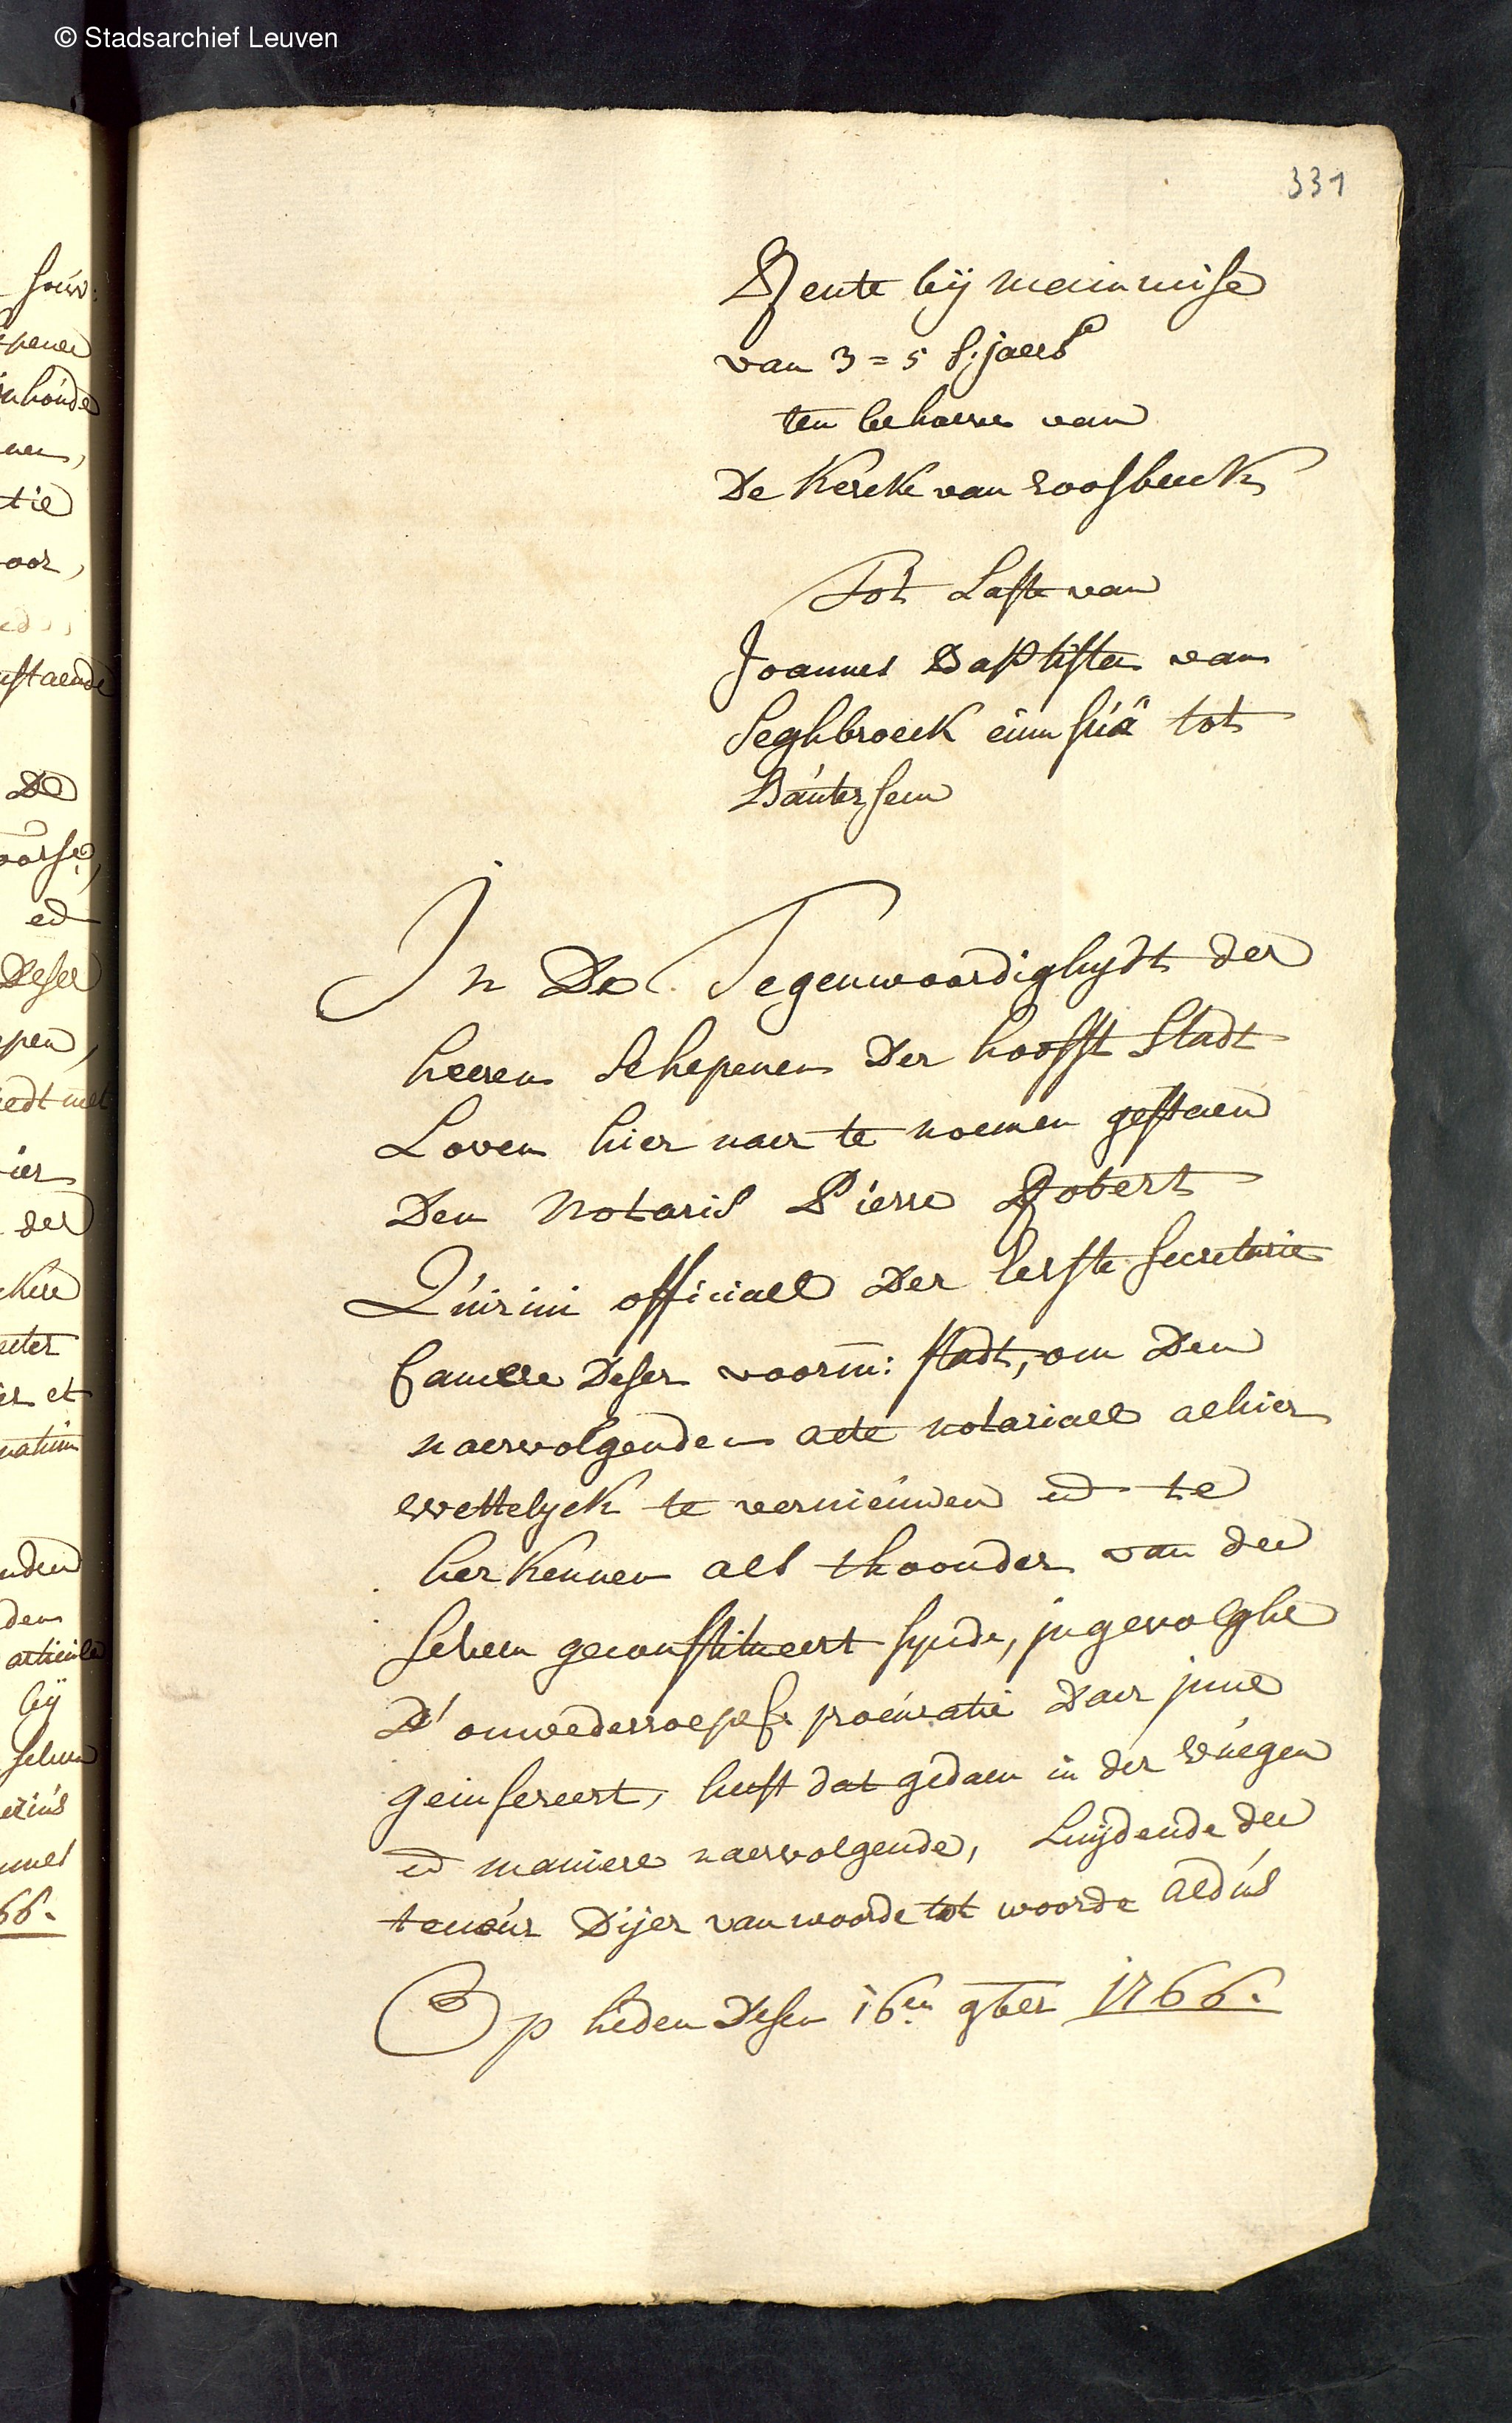 © Stadsarchief Leuven
331
Rente bij mainmise
van 3 = 5 s: jaers
ten behoeve van
De Kercke van roosbeeck
Tot Laste van
Joannes Baptista van
Seghbroeck cum suä tot
Bautersem
In De Tegenwoordigheydt der
heeren Schepenen Der hooft Stadt
Loven hier naer te noemen gestaen
Den Notaris Pierre Robert
Quirini officiael Der Eerste Secretarie
Camere Deser voorm: stadt, om Den
naervolgenden acte notariael alhier
wettelyck te vernieuwen ed te
herkennen als thoonder van der
selven geconstitueert synde, in gevolghe
D' onwederroepel: procuratie Daer inne
geinsereert, heeft dat gedaen in der vuegen
ed maniere naervolgende, Luydende den
teneur Dijer van woorde tot woorde aldus
Op heden Desen 16en 9ber 1766.
souv:
tie
oor,
De
ed
Deser
der
et
articule
bij
66.